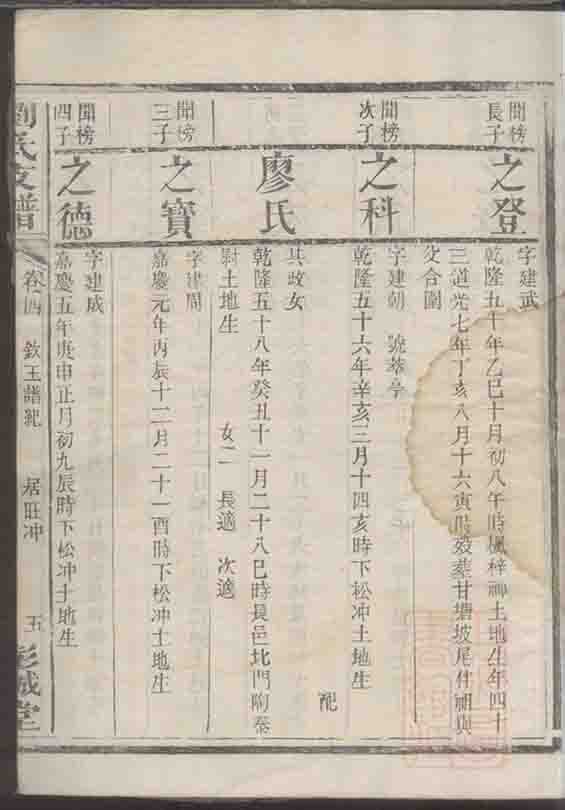 聞榜
長子
之登
字建武
乾隆五十年乙巳十月初八午時楓梓神土地生年四十
三道光七年丁亥八月十六寅時歿葬甘塘坡尾伴祖與
父合圍
聞榜
次子
之科
字建朝 號萃亭
乾隆五十六年辛亥三月十四亥時下松冲土地生
配
廖氏
其政女
乾隆五十八年癸丑十一月二十八巳時長邑北門陶
尉土地生 女二 長適 次適
聞榜
三子
之寶
字建
嘉慶元年丙辰十二月二十一酉時下松冲土地生
聞榜
四子
之德
字建成
嘉慶五年庚申正月初九辰時下松冲土地生
劉氏支譜
卷四 欽玉譜紀 居旺冲 五
彭城堂